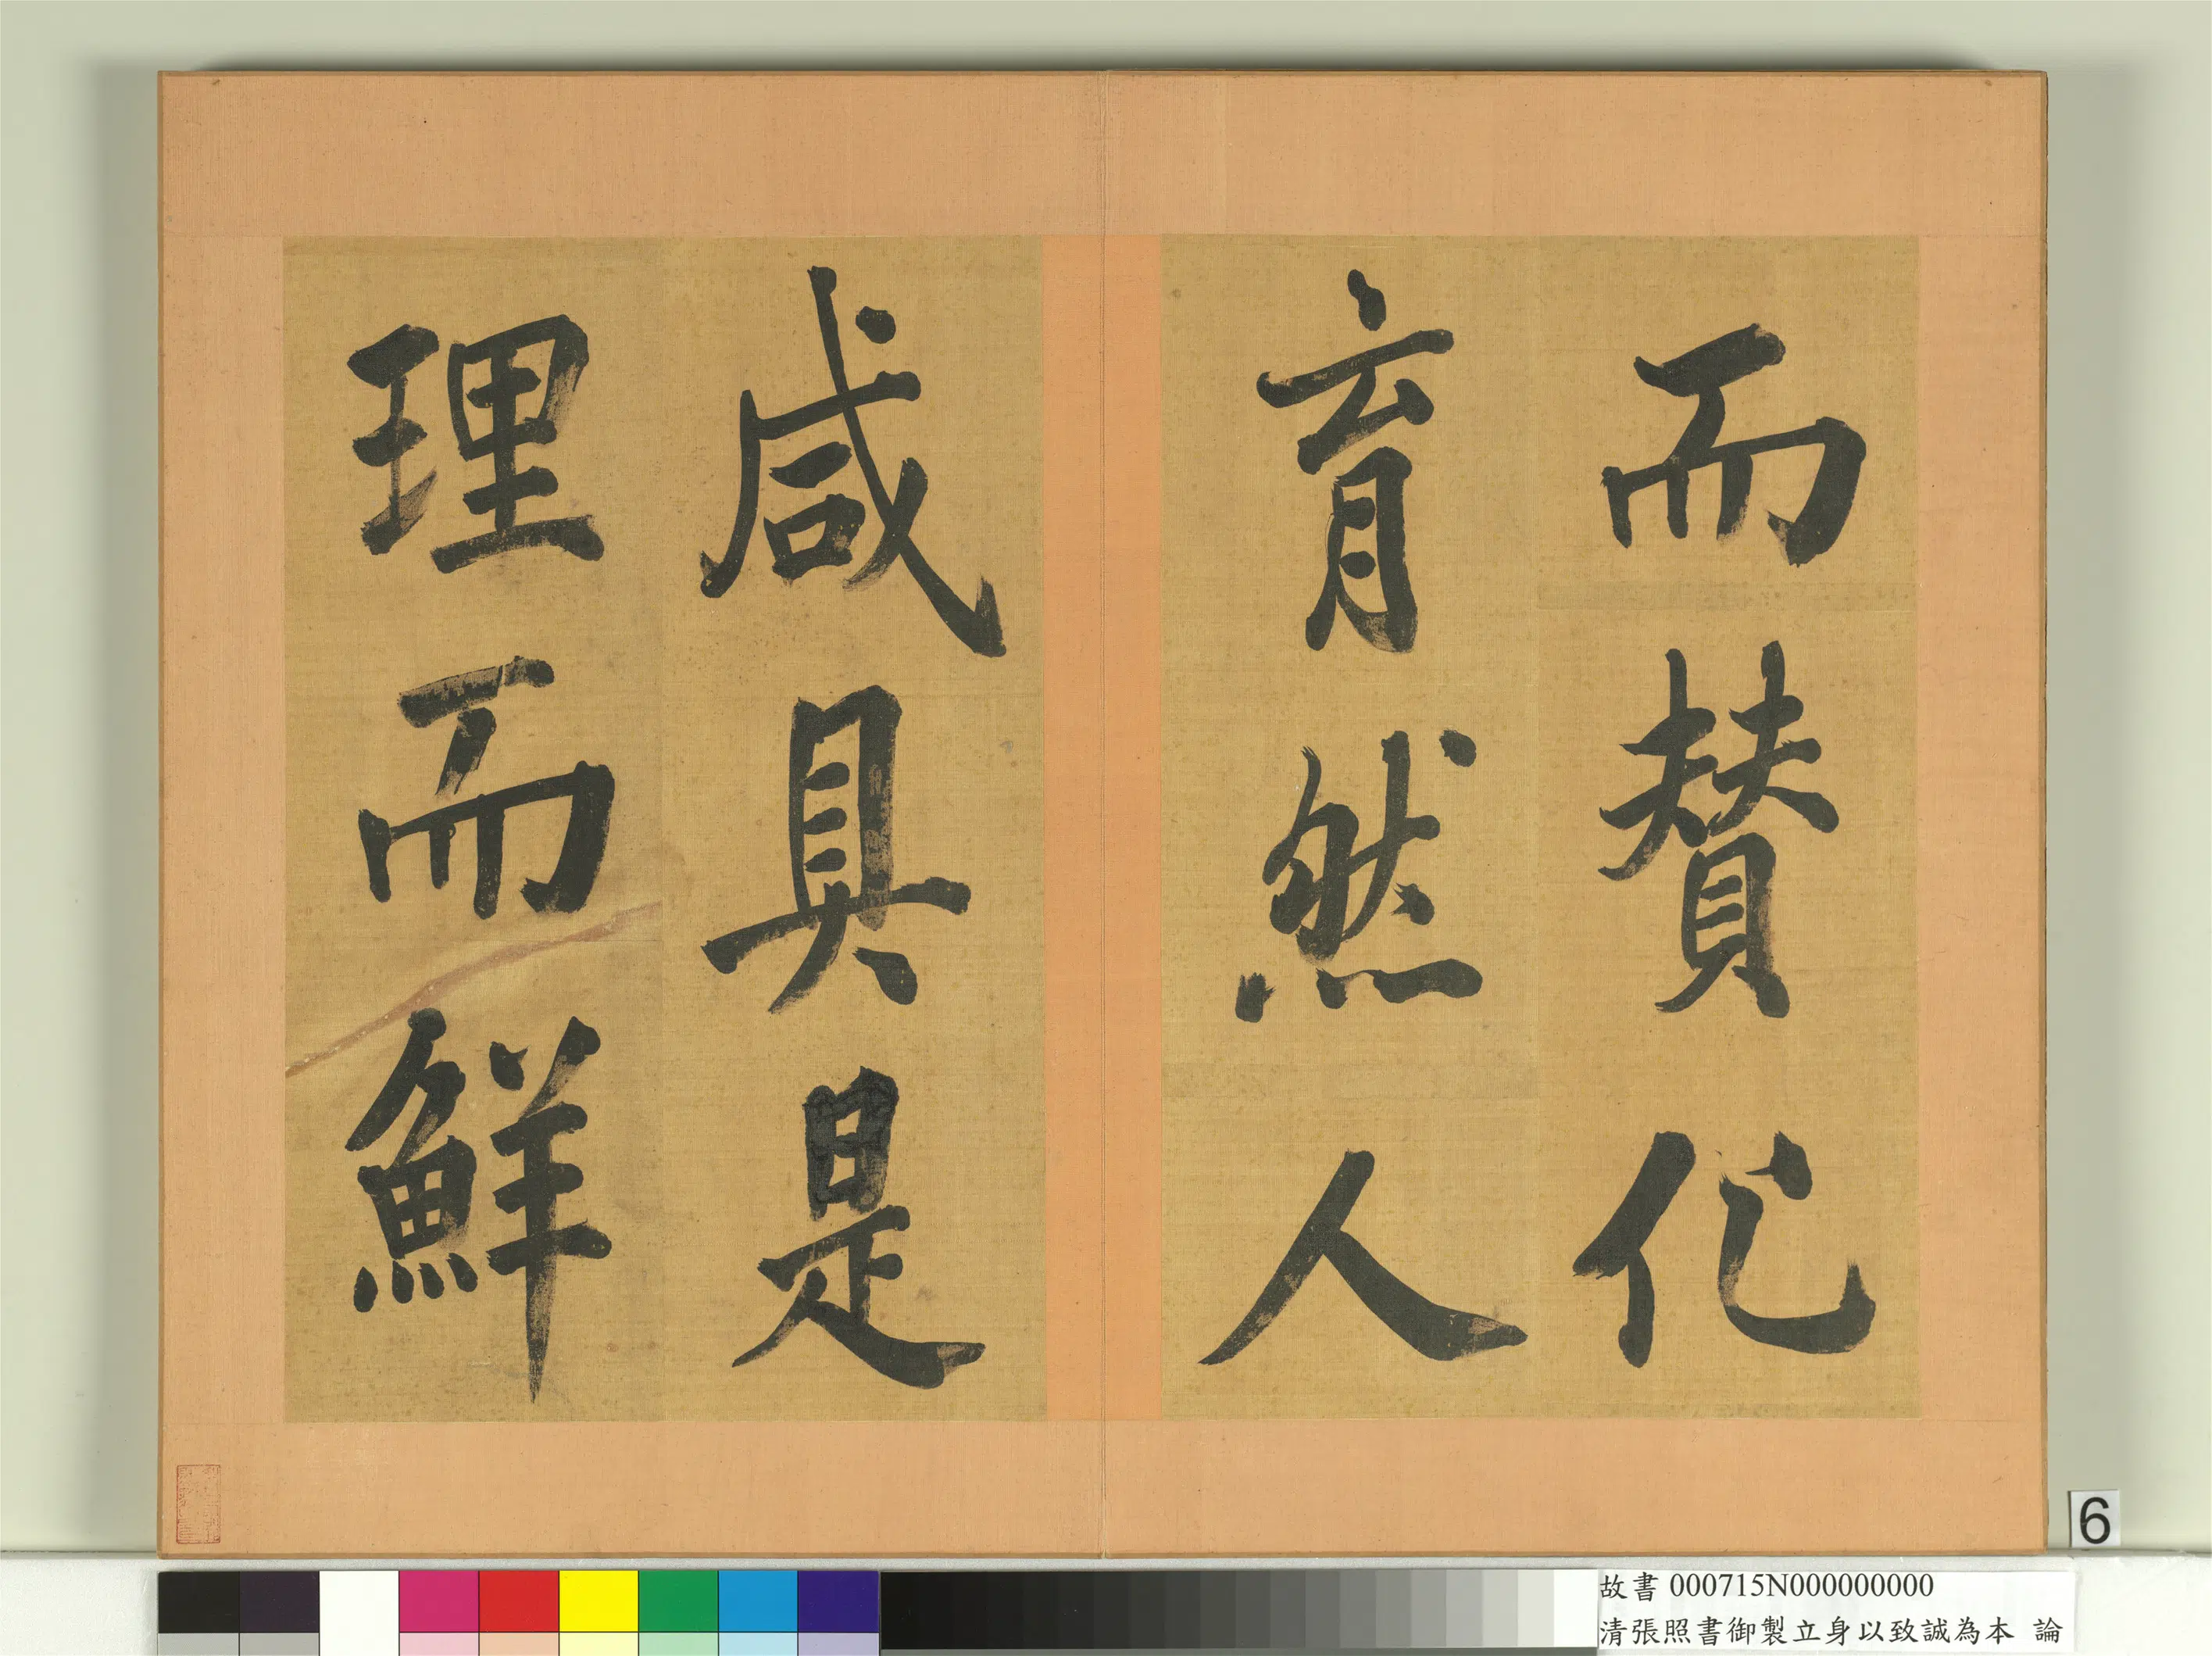 而賛化
育然人
咸具是
理而鮮
6
故書 000715N000000000
清張照書御製立身以致誠為本 論